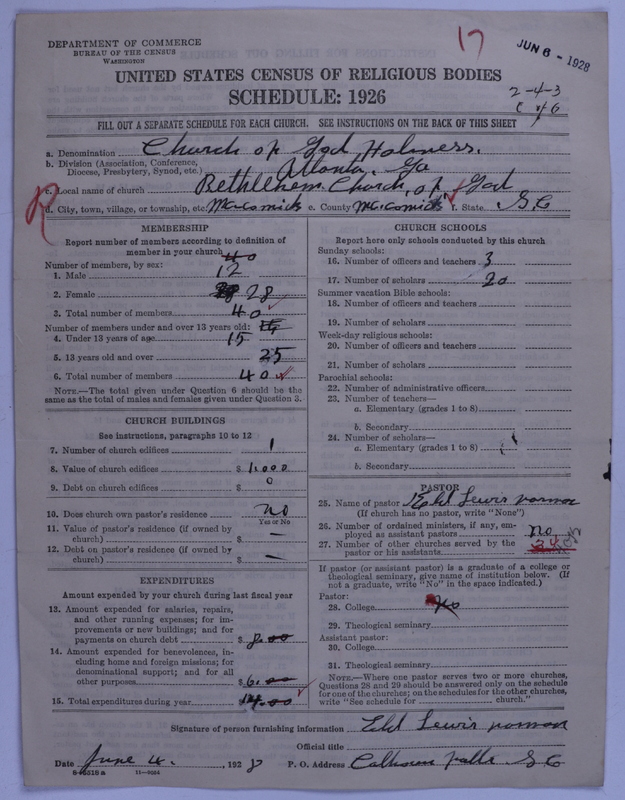 DEPARTMENT OF COMMERCE
BUREAU OF THE CENSUS
WASHINGTON
17
JUN 6 - 1928
UNITED STATES CENSUS OF RELIGIOUS BODIES
SCHEDULE: 1926
2-4-3
FILL OUT A SEPARATE SCHEDULE FOR EACH CHURCH. SEE INSTRUCTIONS ON THE BACK OF THIS SHEET
a. Denomination Church of God Holiness.
b. Division (Association, Conference, Diocese, Presbytery, Synod, etc.) Atlanta, Ga
c. Local name of church Bethlehem Church of God
R
d. City, town, village, or township, etc. McCormick e. County McCormick f. State S.C
MEMBERSHIP
Report number of members according to definition of
member in your church 40
Number of members, by sex:
1. Male 12
2. Female 28 28
3. Total number of members 40
Number of members under and over 13 years old:
4. Under 13 years of age 15
5. 13 years old and over 25
6. Total number of members 40
NOTE.—The total given under Question 6 should be the
same as the total of males and females given under Question 3.
CHURCH BUILDINGS
See instructions, paragraphs 10 to 12
7. Number of church edifices 1
8. Value of church edifices $ 1,000
9. Debt on church edifices $ 0
10. Does church own pastor's residence? no
Yes or No
11. Value of pastor's residence (if owned by
church) $ —
12. Debt on pastor's residence (if owned by
church) $ —
EXPENDITURES
Amount expended by your church during last fiscal year
13. Amount expended for salaries, repairs,
and other running expenses; for im-
provements or new buildings; and for
payments on church debt $ 8.00
14. Amount expended for benevolences, in-
cluding home and foreign missions; for
denominational support; and for all
other purposes $ 6.00
15. Total expenditures during year 14.00
CHURCH SCHOOLS
Report here only schools conducted by this church
Sunday schools:
16. Number of officers and teachers 3
17. Number of scholars 20
Summer vacation Bible schools:
18. Number of officers and teachers
19. Number of scholars
Week-day religious schools:
20. Number of officers and teachers
21. Number of scholars
Parochial schools:
22. Number of administrative officers
23. Number of teachers—
a. Elementary (grades 1 to 8)
b. Secondary
24. Number of scholars—
a. Elementary (grades 1 to 8)
b. Secondary
PASTOR
25. Name of pastor Eld Lewis
(If church has no pastor, write "None")
26. Number of ordained ministers, if any, em-
ployed as assistant pastors no
27. Number of other churches served by the
pastor or his assistants
If pastor (or assistant pastor) is a graduate of a college or
theological seminary, give name of institution below. (If
not a graduate, write "No" in the space indicated.)
Pastor:
28. College No
29. Theological seminary
Assistant pastor:
30. College
31. Theological seminary
NOTE.—Where one pastor serves two or more churches,
Questions 28 and 29 should be answered only on the schedule
for one of the churches; on the schedules for the other churches,
write "See schedule for church."
Signature of person furnishing information Eld Lewis
Official title
Date June 4, 1928 P. O. Address Calhoun Falls S C
11—9055